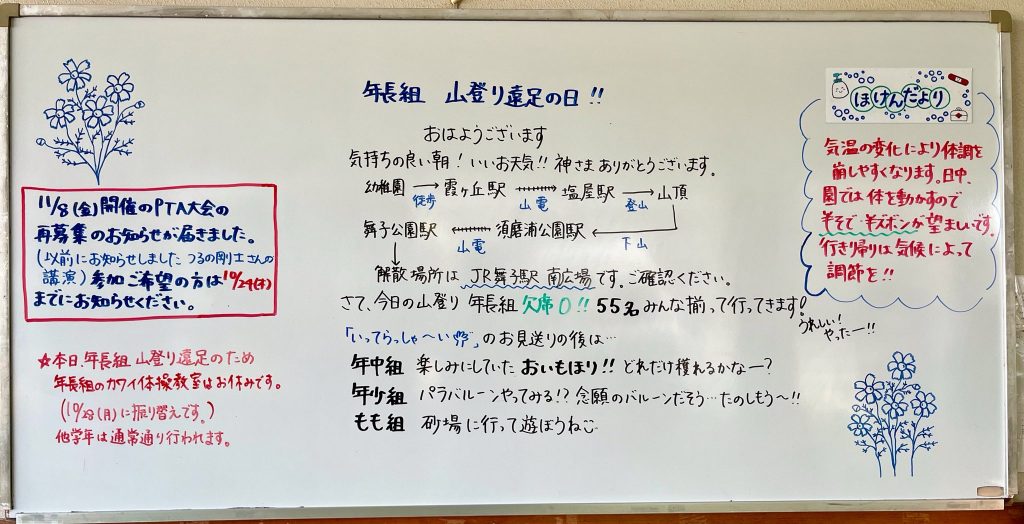 年長組 山登り遠足の日!!
おはようございます
気持ちの良い朝！いいお天気!! 神さまありがとうございます。
幼稚園 → 霞ヶ丘駅 → 塩屋駅 → 山頂
徒歩 山電 登山
舞子公園駅 ← 須磨浦公園駅 ←
山電 下山
解散場所は JR舞子駅 南広場です。ご確認ください。
さて、今日の山登り 年長組 欠席0!! 55名みんな揃って行ってきます!
うれしい!
やったー!!
「いってらっしゃ〜い」のお見送りの後は…
年中組 楽しみにしていた おいもほり!! どれだけ穫れるかな〜?
年少組 パラバルーンやってみる!? 念願のバルーンだぞ…たのしもう〜!!
もも組 砂場に行って遊ぼうね
11/8(金)開催のPTA大会の
再募集のお知らせが届きました。
(以前にお知らせしました つるの剛士さんの
講演)参加ご希望の方は10/24(木)
までにお知らせください。
☆本日、年長組 山登り遠足のため
年長組のカワイ体操教室はお休みです。
(10/28(月)に振り替えです。)
他学年は通常通り行われます。
ほけんだより
気温の変化により体調を
崩しやすくなります。日中、
園では体を動かすので
半そで・半ズボンが望ましいです。
行き帰りは気候によって
調節を!!